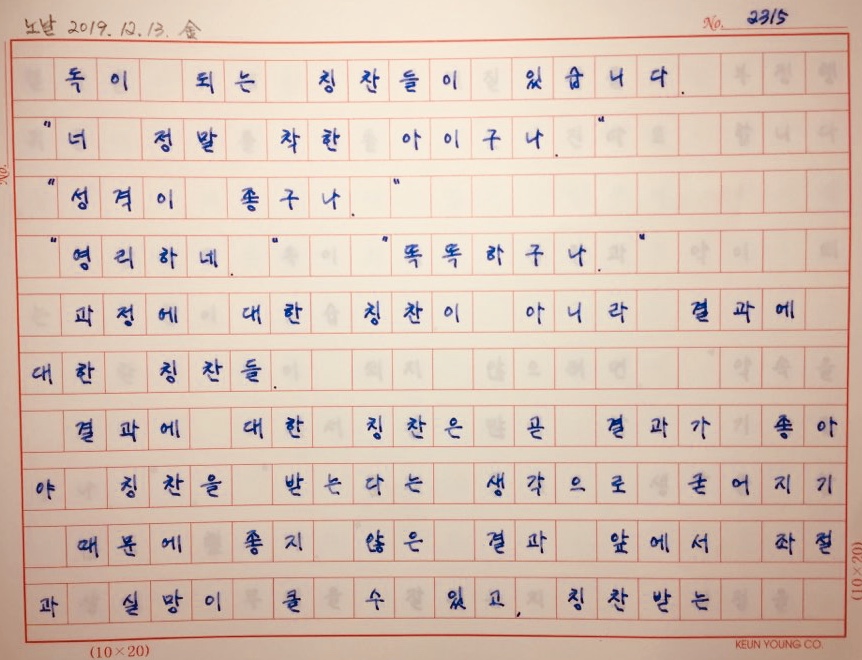 노날 2019.12.13. 金
No. 2315
독이 되는 칭찬들이 있습니다.
"너 정말 착한 아이구나."
"성격이 좋구나."
"영리하네." "똑똑하구나."
과정에 대한 칭찬이 아니라 결과에
대한 칭찬들.
결과에 대한 칭찬은 곧 결과가 좋아
야 칭찬을 받는다는 생각으로 굳어지기
때문에 좋지 않은 결과 앞에서 좌절
과 실망이 클 수 있고, 칭찬받는
(10×20)
KEUN YOUNG CO.
(10×20)
No.